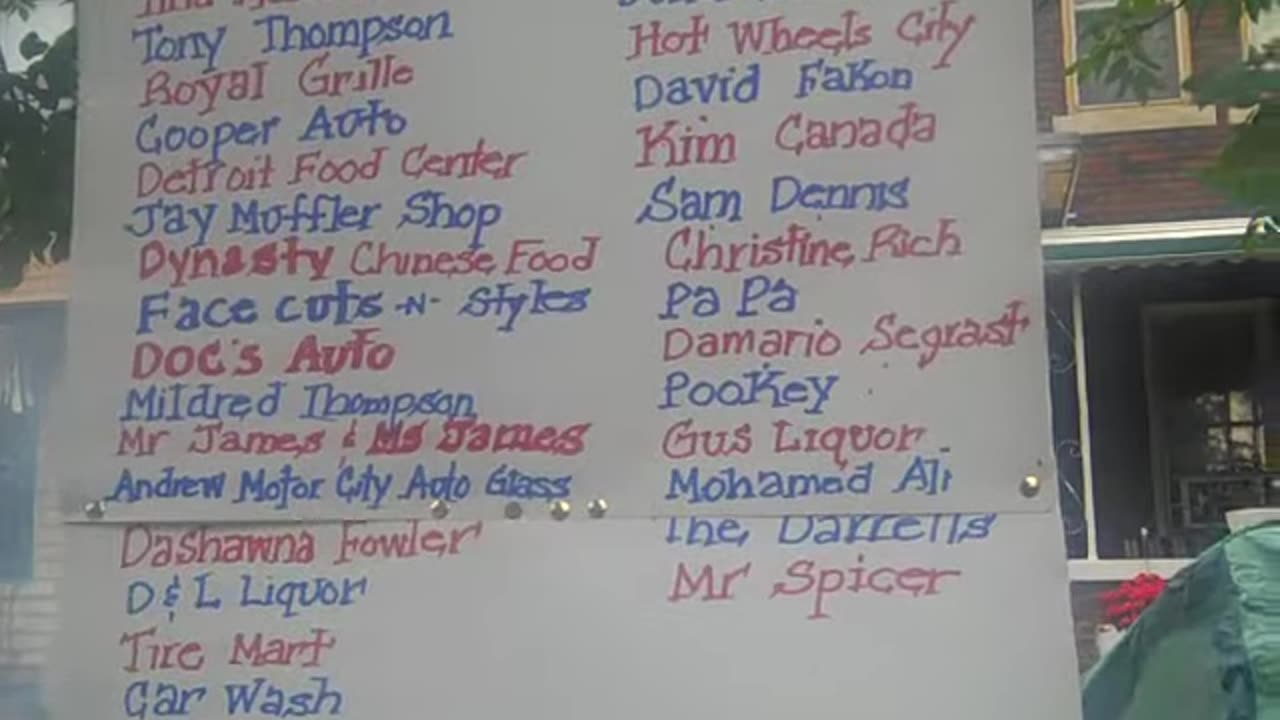 Tony Thompson
Royal Grille
Cooper Auto
Detroit Food Center
Jay Muffler Shop
Dynasty Chinese Food
Face cuts -N- Styles
DOC's Auto
Mildred Thompson
Mr James & Ms James
Andrew Motor City Auto Glass
Dashawna Fowler
D & L Liquor
Tire Mart
Car Wash
Hot Wheels City
David Fakon
Kim Canada
Sam Dennis
Christine Rich
Pa Pa
Damario Segrast
Pookey
Gus Liquor
Mohamed Ali
The Darrells
Mr Spicer